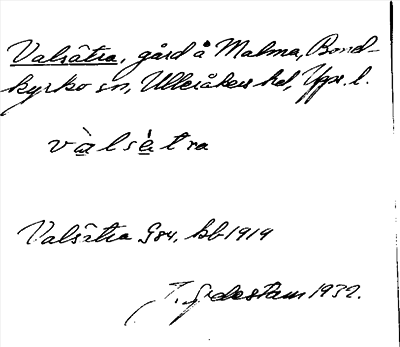 Valsätra, gård å Malma, Bond-
kyrko sn, Ulleråkers hd, Upps. l.
vàlsètra
Valsätra G84, kb 1919
J. Gidestam 1932.